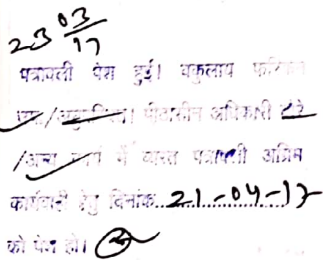 23 03/17
पत्रावली पेश हुई। वकुलाय फरिकेन
/अनुपस्थित। पीठासीन अधिकारी दौरे
/अन्य कार्य में व्यस्त पत्रावली अग्रिम
कार्यवाही हेतु दिनांक..21-04-17
को पेश हो।